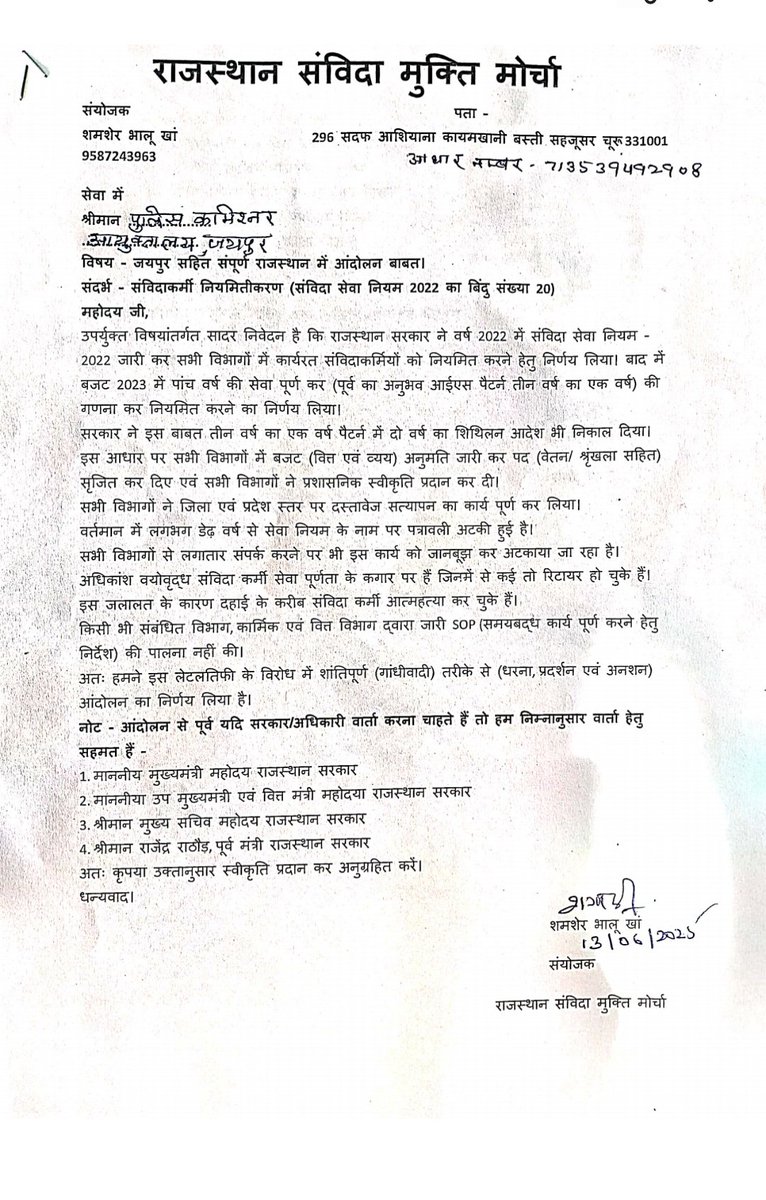 राजस्थान संविदा मुक्ति मोर्चा
संयोजक
पता -
शमशेर भालू खां
296 सदफ आशियाना कायमखानी बस्ती सहजूसर चूरू 331001
9587243963
आधार नम्बर - 713539492908
सेवा में
श्रीमान पुलिस कमिश्नर
आयुक्तालय, जयपुर
विषय - जयपुर सहित संपूर्ण राजस्थान में आंदोलन बाबत।
संदर्भ - संविदाकर्मी नियमितीकरण (संविदा सेवा नियम 2022 का बिंदु संख्या 20)
महोदय जी,
उपर्युक्त विषयांतर्गत सादर निवेदन है कि राजस्थान सरकार ने वर्ष 2022 में संविदा सेवा नियम -
2022 जारी कर सभी विभागों में कार्यरत संविदाकर्मियों को नियमित करने हेतु निर्णय लिया। बाद में
बजट 2023 में पांच वर्ष की सेवा पूर्ण कर (पूर्व का अनुभव आईएस पैटर्न तीन वर्ष का एक वर्ष) की
गणना कर नियमित करने का निर्णय लिया।
सरकार ने इस बाबत तीन वर्ष का एक वर्ष पैटर्न में दो वर्ष का शिथिलन आदेश भी निकाल दिया।
इस आधार पर सभी विभागों में बजट (वित्त एवं व्यय) अनुमति जारी कर पद (वेतन/ श्रृंखला सहित)
सृजित कर दिए एवं सभी विभागों ने प्रशासनिक स्वीकृति प्रदान कर दी।
सभी विभागों ने जिला एवं प्रदेश स्तर पर दस्तावेज सत्यापन का कार्य पूर्ण कर लिया।
वर्तमान में लगभग डेढ़ वर्ष से सेवा नियम के नाम पर पत्रावली अटकी हुई है।
सभी विभागों से लगातार संपर्क करने पर भी इस कार्य को जानबूझ कर अटकाया जा रहा है।
अधिकांश वयोवृद्ध संविदा कर्मी सेवा पूर्णता के कगार पर हैं जिनमें से कई तो रिटायर हो चुके हैं।
इस जलालत के कारण दहाई के करीब संविदा कर्मी आत्महत्या कर चुके हैं।
किसी भी संबंधित विभाग, कार्मिक एवं वित्त विभाग द्वारा जारी SOP (समयबद्ध कार्य पूर्ण करने हेतु
निर्देश) की पालना नहीं की।
अतः हमने इस लेटलतिफी के विरोध में शांतिपूर्ण (गांधीवादी) तरीके से (धरना, प्रदर्शन एवं अनशन)
आंदोलन का निर्णय लिया है।
नोट - आंदोलन से पूर्व यदि सरकार/अधिकारी वार्ता करना चाहते हैं तो हम निम्नानुसार वार्ता हेतु
सहमत हैं -
1. माननीय मुख्यमंत्री महोदय राजस्थान सरकार
2. माननीया उप मुख्यमंत्री एवं वित्त मंत्री महोदया राजस्थान सरकार
3. श्रीमान मुख्य सचिव महोदय राजस्थान सरकार
4. श्रीमान राजेंद्र राठौड़, पूर्व मंत्री राजस्थान सरकार
अतः कृपया उक्तानुसार स्वीकृति प्रदान कर अनुग्रहित करें।
धन्यवाद।
शमशेर भालू खां
13/06/2025
संयोजक
राजस्थान संविदा मुक्ति मोर्चा